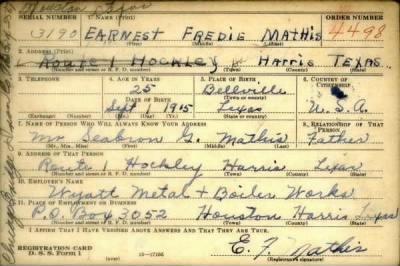 Houston Texas
SERIAL NUMBER 1. NAME (Print) ORDER NUMBER
3190 EARNEST FREDIE MATHIS 4498
(First) (Middle) (Last)
2. ADDRESS (Print)
Route 1 HOCKLEY HARRIS TEXAS
(Number and street or R. F. D. number) (Town) (County) (State)
3. TELEPHONE 4. AGE IN YEARS 5. PLACE OF BIRTH 6. COUNTRY OF CITIZENSHIP
25 Bellville
DATE OF BIRTH (Town or county)
Sept 1 1915 Texas U.S.A.
(Exchange) (No.) (Mo.) (Day) (Yr.) (State or country)
7. NAME OF PERSON WHO WILL ALWAYS KNOW YOUR ADDRESS 8. RELATIONSHIP OF THAT PERSON
Mr Seabron G. Mathis Father
(Mr., Mrs., Miss) (First) (Middle) (Last)
9. ADDRESS OF THAT PERSON
Route 1 Hockley Harris Texas
(Number and street or R. F. D. number) (Town) (County) (State)
10. EMPLOYER'S NAME
Wyatt Metal + Boiler Works
11. PLACE OF EMPLOYMENT OR BUSINESS
P.O. Box 3052 Houston Harris Texas
(Number and street or R. F. D. number) (Town) (County) (State)
I AFFIRM THAT I HAVE VERIFIED ABOVE ANSWERS AND THAT THEY ARE TRUE.
REGISTRATION CARD
D. S. S. Form 1 E. F. Mathis
(Registrant's signature)